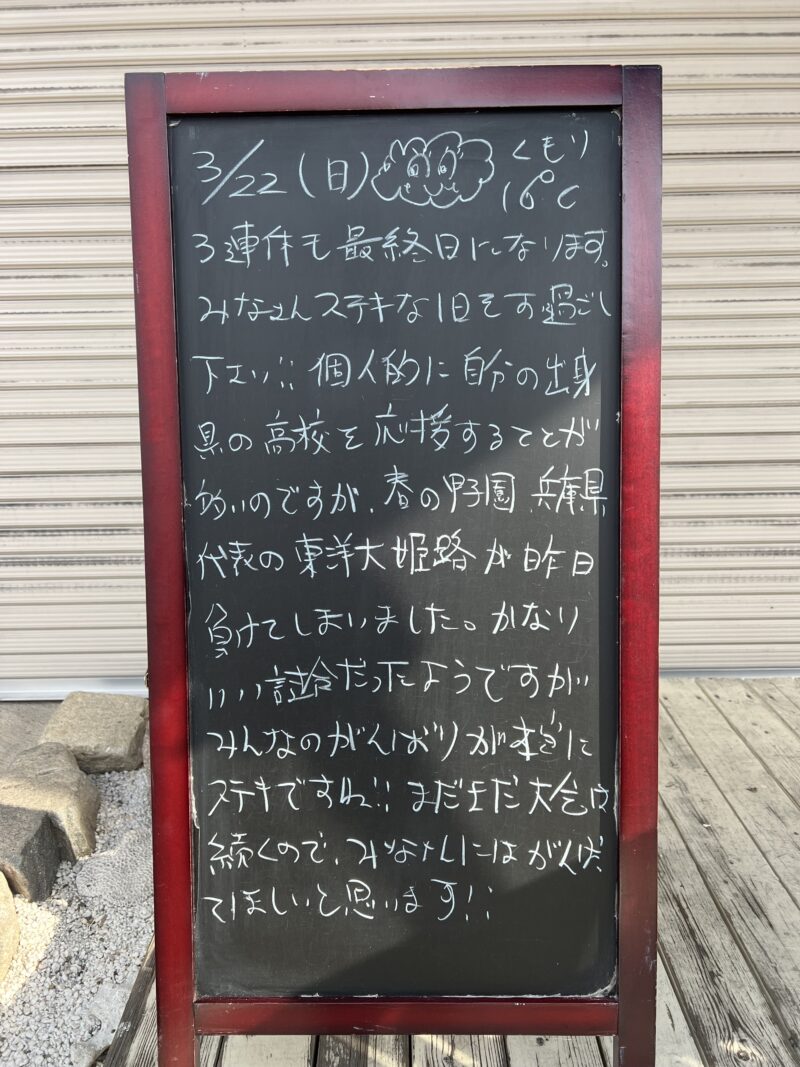 3/22（日） くもり
16℃
3連休も最終日になります。
みなさんステキな1日をす過ごし
下さい!! 個人的に自分の出身
県の高校を応援することが
多いのですが、春の甲子園 兵庫県
代表の東洋大姫路が昨日
負けてしまいました。かなり
いい試合だったようですが
みんなのがんばりが本当に
ステキですね!! まだまだ大会は
続くので、みなさんにはがんば
てほしいと思います!!